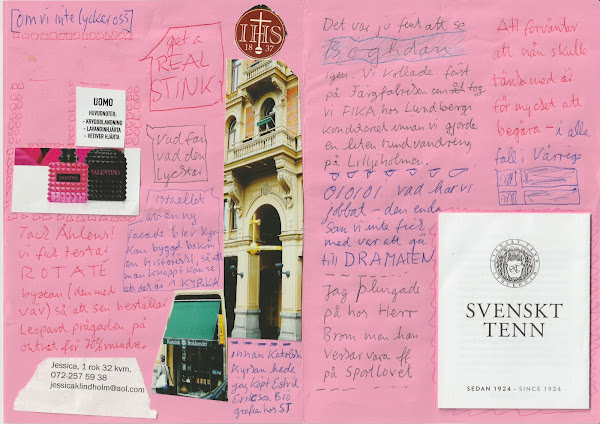 [om vi inte lyckas oss]
get a
REAL
STINK!
UOMO
HUVUDNOTER:
- KRYDDBLANDNING
- LAVANDINHJÄRTA
- VETIVER HJÄRTA
VALENTINO
VALENTINO
Vad
vad den
lyester
Tack Åhlens!
vi fick testa
ROTATE
byxan (den med
väv) så att sen beställa
Leopard präglade på
outnet för 70% mindre.
Jessica, 1 rok 32 kvm.
072-257 59 38
jessicaklindholm@aol.com
Istället
en ny
facade blev kyr
kan byggd bakom
en historisk, så att
man knappt kan se
att det är 1 KYRKA
IHS
18 37
Katolsk Bokhandel
innan Katolska
Kyrkan hade
jag köpt Estrid
Ericson BIO
grafien hos ST
Det var ju fint att se
Boghdan
igen. Vi kollade först
på Färgfabriken sen åt tog
vi FIKA hos Lundbergs
konditoriet innan vi gjorde
en liten rundvandring
på Liljeholmen.
010101 vad har vi
jobbat - den enda
San vi inte fick
med var att gå
till DRAMATEN
Jag plingade
på hos Herr
Brom men han
verkar vara
på Sportlovet
Att förvänta
att man skulle
tända med är
för mycket att
begära - i alla
fall i Sverige
SVENSKT
TENN
SEDAN 1924 · SINCE 1924